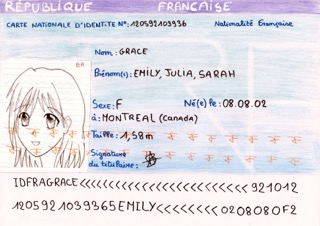 RÉPUBLIQUE FRANÇAISE
CARTE NATIONALE D'IDENTITE Nº: 120592103936 Nationalité Française
Nom: GRACE
Prénom(s): EMILY, JULIA, SARAH
Sexe: F Né(e) le: 08.08.02
à: MONTREAL (Canada)
Taille: 1,58m
Signature
du titulaire:
IDFRAGRACE<<<<<<<<<<<<<<<<<<<<921012
1205921039365EMILY<<<<<<<<0208080F2